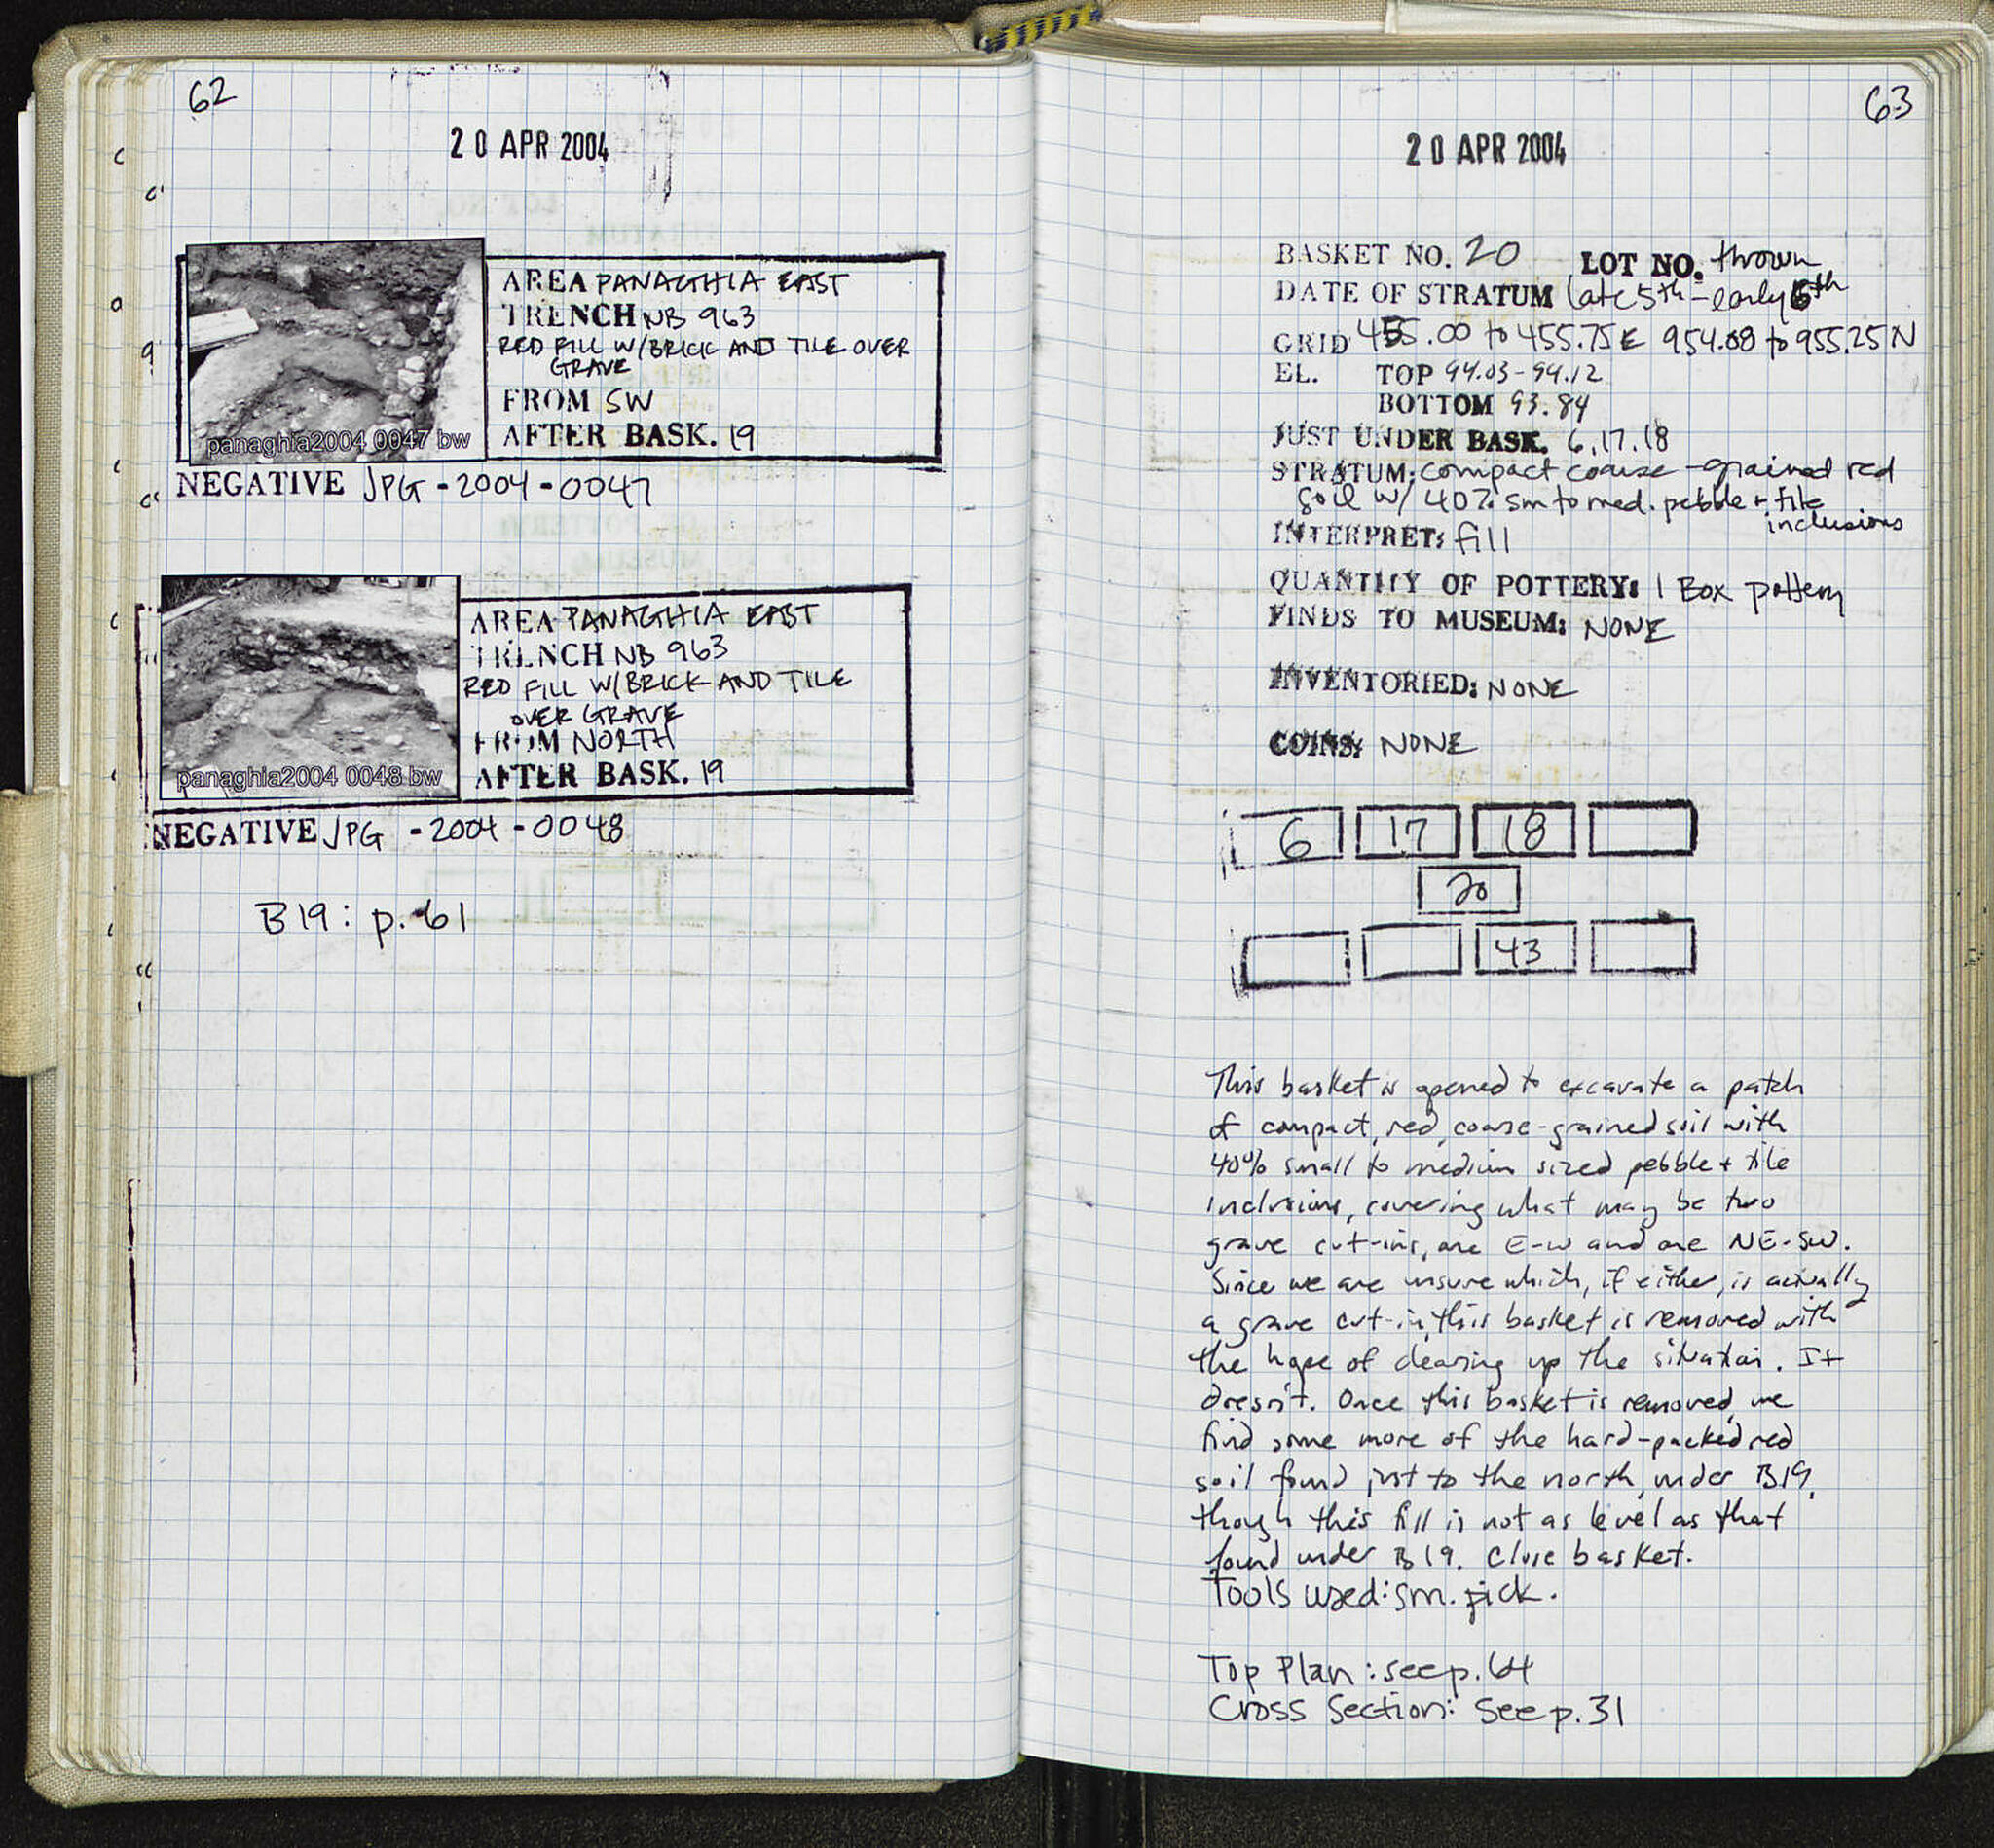 62
20 APR 2004
AREA PANAGHIA EAST
TRENCH NB 963
RED FILL W/BRICK AND TILE OVER
GRAVE
FROM SW
AFTER BASK. 19
panaghia2004 0047 bw
NEGATIVE JPG-2004-0047
AREA PANAGHIA EAST
TRENCH NB 963
RED FILL W/BRICK AND TILE
OVER GRAVE
FROM NORTH
AFTER BASK. 19
panaghia2004 0048 bw
NEGATIVE JPG-2004-0048
B19: p. 61
63
20 APR 2004
BASKET NO. 20 LOT NO. thrown
DATE OF STRATUM late 5th-early 6th
GRID 455.00 to 455.75 E 954.08 to 955.25 N
EL. TOP 94.03-94.12
BOTTOM 93.84
JUST UNDER BASK. 6,17,18
STRATUM: compact coarse-grained red
soil w/ 40% sm to med. pebble + tile
inclusions
INTERPRET: fill
QUANTITY OF POTTERY: 1 Box pottery
FINDS TO MUSEUM: NONE
INVENTORIED: NONE
COINS: NONE
6 17 18
20
43
This basket is opened to excavate a patch
of compact, red, coarse-grained soil with
40% small to medium sized pebble + tile
inclusions, covering what may be two
grave cut-ins, one E-W and one NE-SW.
Since we are unsure which, if either, is actually
a grave cut-in, this basket is removed with
the hope of clearing up the situation. It
doesn't. Once this basket is removed, we
find some more of the hard-packed red
soil found just to the north, under B19,
though this fill is not as level as that
found under B19. Close basket.
Tools used: sm. pick.
Top Plan: see p. 64
Cross Section: see p. 31